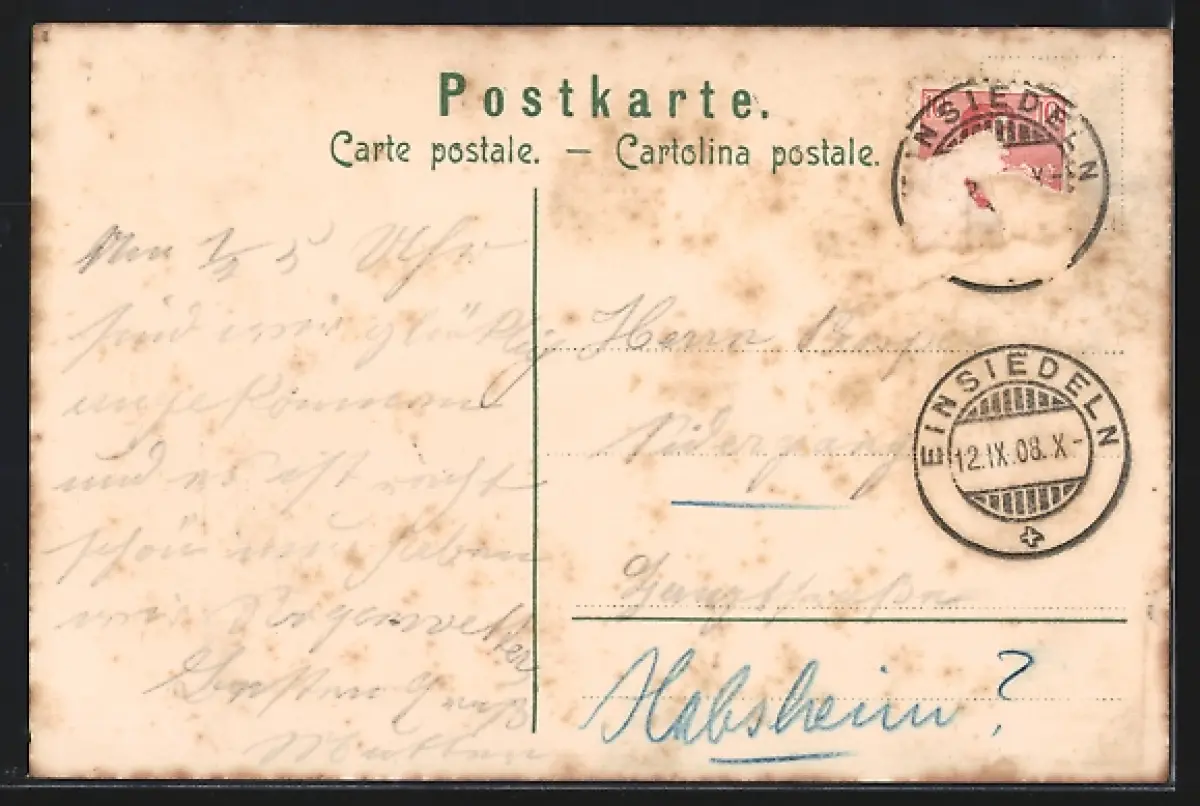 Postkarte.
Carte postale. — Cartolina postale.
10 10
EINSIEDELN
Um ½ 5 Uhr
sind wir glücklig
angekommen
und es ist recht
schön und haben
wir Regenwetter
Besten Gruß
Herrn
EINSIEDELN
12.IX.08.X-
Habsheim?